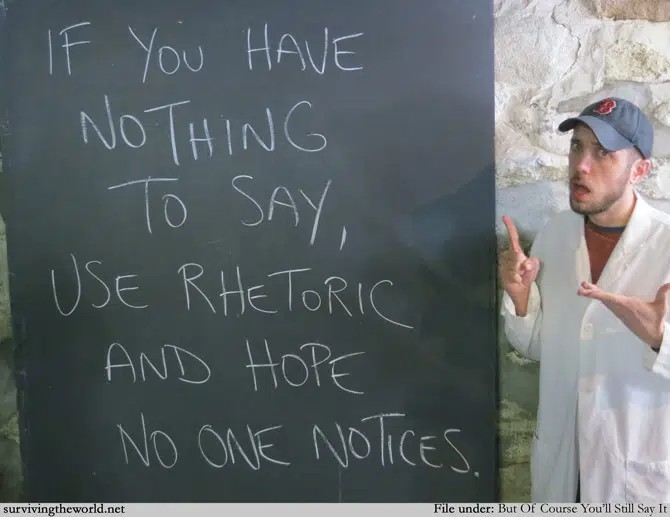 IF YOU HAVE
NOTHING
TO SAY,
USE RHETORIC
AND HOPE
NO ONE NOTICES.
B
survivingtheworld.net
File under: But Of Course You'll Still Say It